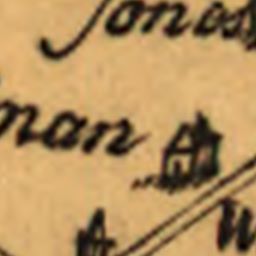 Jones
nan
W